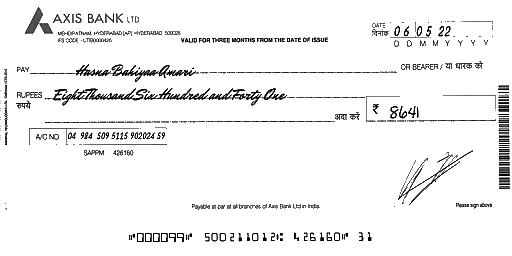 AXIS BANK LTD
MEHDIPATNAM, HYDERABAD [AP] HYDERABAD 500028
IFS CODE - UTIB0000426
VALID FOR THREE MONTHS FROM THE DATE OF ISSUE
DATE
दिनांक 06 05 22
D D M M Y Y Y Y
PAY Hasna Bahiyaa Amari OR BEARER / या धारक को
RUPEES Eight Thousand Six Hundred and Forty One
रुपये अदा करें ₹ 8641
A/C NO 04 984 509 5115 902024 59
SAPPM 426160
Payable at par at all branches of Axis Bank Ltd in India.
Please sign above
⑈000099⑈ 500211012⑆ 426160⑈ 31